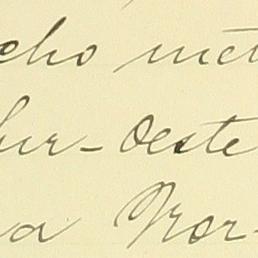 cho met
ur-Oeste
a Nor-